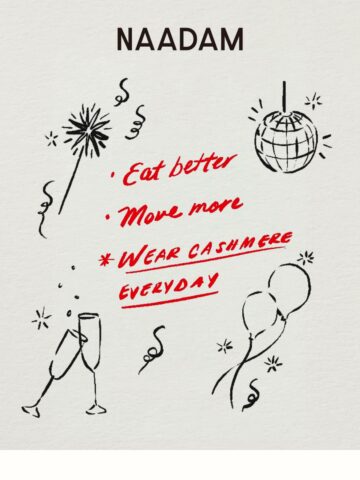 NAADAM
· Eat better
· Move more
* WEAR CASHMERE
EVERYDAY